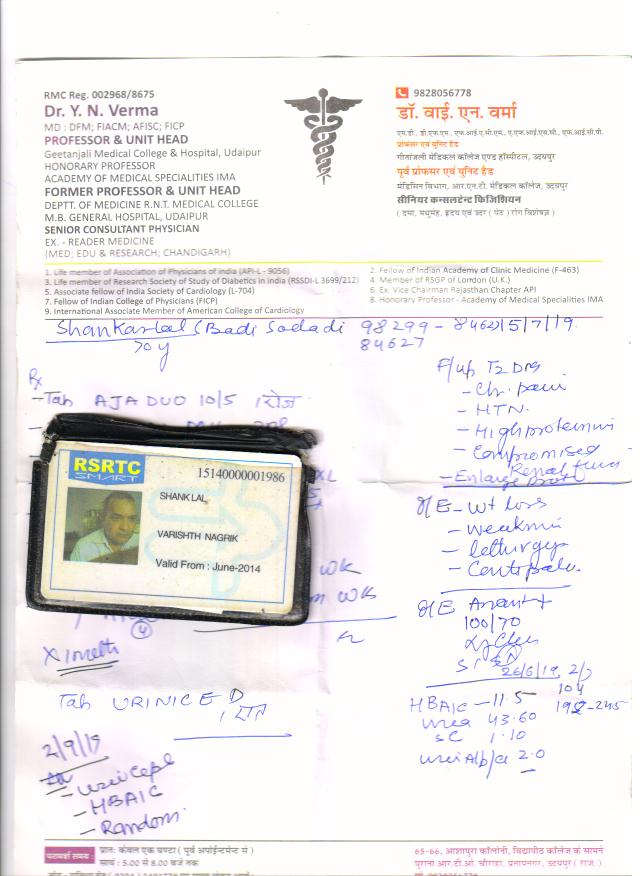 RMC Reg. 002968/8675
Dr. Y. N. Verma
MD : DFM; FIACM; AFISC; FICP
PROFESSOR & UNIT HEAD
Geetanjali Medical College & Hospital, Udaipur
HONORARY PROFESSOR
ACADEMY OF MEDICAL SPECIALITIES IMA
FORMER PROFESSOR & UNIT HEAD
DEPTT. OF MEDICINE R.N.T. MEDICAL COLLEGE
M.B. GENERAL HOSPITAL, UDAIPUR
SENIOR CONSULTANT PHYSICIAN
EX. - READER MEDICINE
(MED; EDU & RESEARCH; CHANDIGARH)
9828056778
डॉ. वाई. एन. वर्मा
एम.डी., डी.एफ.एम., एफ.आई.ए.सी.एम., ए.एफ.आई.एस.सी., एफ.आई.सी.पी.
प्रोफेसर एवं युनिट हैड
गीतांजली मेडिकल कॉलेज एण्ड हॉस्पिटल, उदयपुर
पूर्व प्रोफसर एवं युनिट हैड
मेडिसिन विभाग, आर.एन.टी. मेडिकल कॉलेज, उदयपुर
सीनियर कन्सलटेन्ट फिजिशियन
( दमा, मधुमेह, हृदय एवं उदर ( पेट ) रोग विशेषज्ञ )
1. Life member of Association of Physicians of india (API-L - 9056)
2. Fellow of Indian Academy of Clinic Medicine (F-463)
3. Life member of Research Society of Study of Diabetics in india (RSSDI-L 3699/212)
4. Member of RSGP of London (U.K.)
5. Associate fellow of India Society of Cardiology (L-704)
6. Ex. Vice Chairman Rajasthan Chapter API
7. Fellow of Indian College of Physicians (FICP)
8. Honorary Professor - Academy of Medical Specialities IMA
9. International Associate Member of American College of Cardiology
Shankarlal (Badi 98299 - 84627 5/7/19
70 y 84627
Rx
- Tab AJADUO 10/5 1 रोज
RSRTC
SMART
15140000001986
SHANK LAL
VARISHTH NAGRIK
Valid From : June-2014
XL
WK
WK
4
X 1 month
Tab URINICE D
2/9/19
- HBAIC
- Random
F/up T2 DM
- HTN
- High protein
- Compromised
Renal func
- Enlarge
O/E - Wt loss
- weakness
O/E
100/70
26/6/19, 2/7
104
HBAIC - 11.5 192-245
urea 43.60
SC 1.10
2.0
परामर्श समय :
प्रातः केवल एक घण्टा ( पूर्व अपॉईन्टमेन्ट से )
सायं : 5.00 से 8.00 बजे तक
65-66, आशापुरा कॉलोनी, विद्यापीठ कॉलेज के सामने
पुराना आर.टी.ओ. चौराहा, प्रतापनगर, उदयपुर ( राज. )